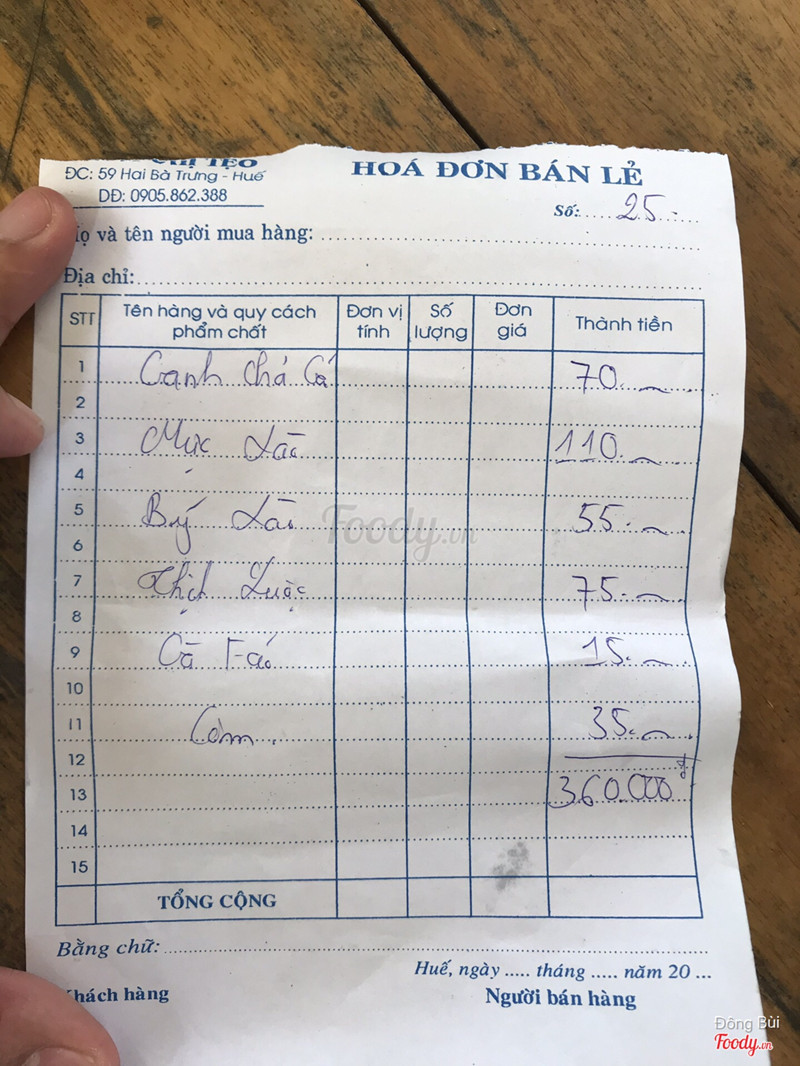 CHỊ TẸO
ĐC: 59 Hai Bà Trưng - Huế
DĐ: 0905.862.388
HOÁ ĐƠN BÁN LẺ
Số: 25
ọ và tên người mua hàng:
Địa chỉ:
STT Tên hàng và quy cách phẩm chất Đơn vị tính Số lượng Đơn giá Thành tiền
1 Canh chả cá 70.
2
3 Mực xào 110.
4
5 Bý xào 55.
6
7 Thịt luộc 75.
8
9 Cà Fáo 15.
10
11 Cơm. 35.
12
13 360.000đ
14
15
TỔNG CỘNG
Bằng chữ:
Huế, ngày ..... tháng ..... năm 20 ...
Khách hàng Người bán hàng
Foody.vn
Đông Bùi
Foody.vn